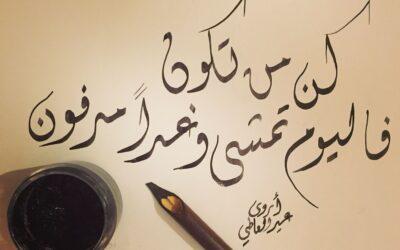 كن من تكون
فاليوم تمشى وغداً مدفون
أروى
عبدالعاطي